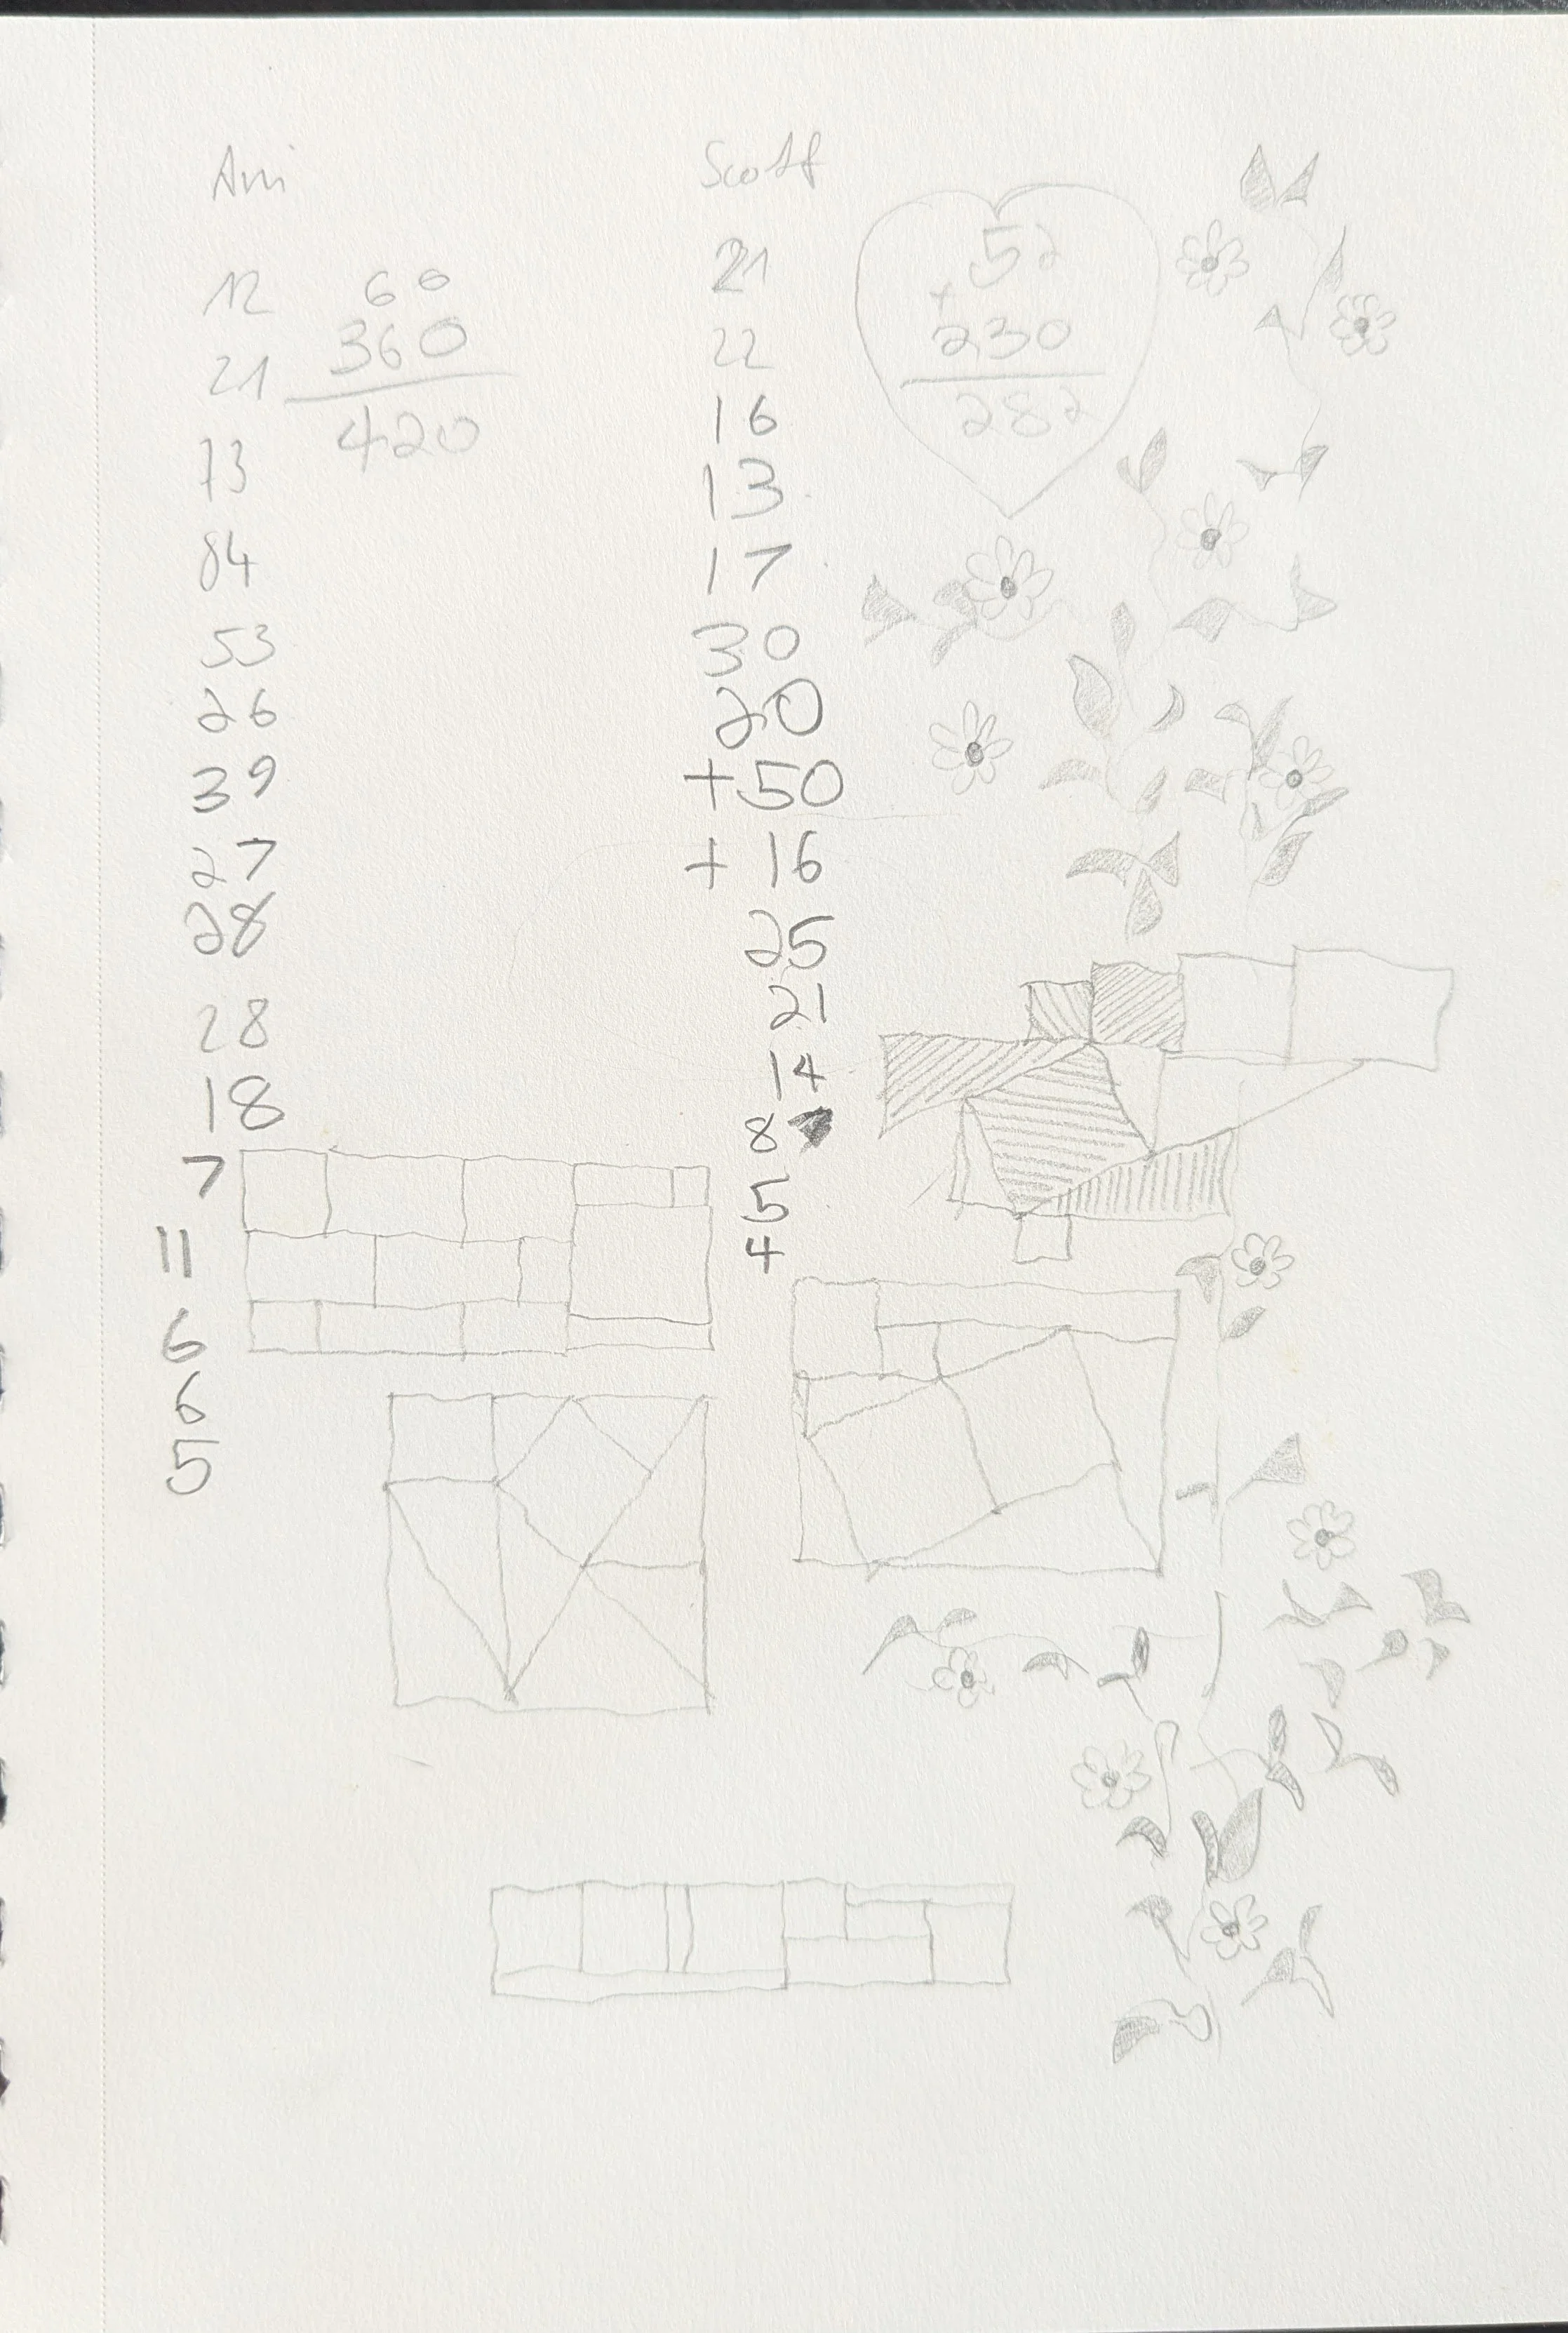 Ani
12
21
73
84
53
26
39
27
28
28
18
7
11
6
6
5
60
360
420
Scott
21
22
16
13
17
30
20
+50
+ 16
25
21
14
8
5
4
52
+
230
282